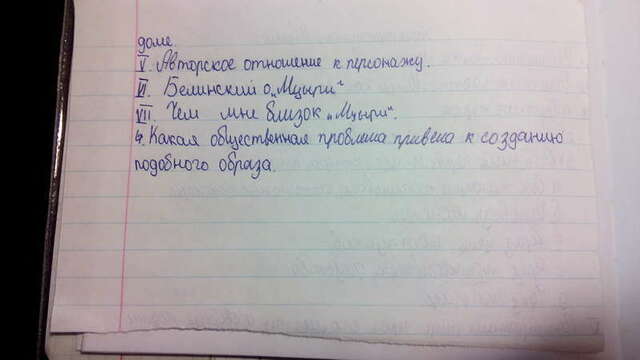 доме.
V. Авторское отношение к персонажу.
VI. Белинский о „Мцыри“
VII. Чем мне близок „Мцыри“.
4. Какая общественная проблема привела к созданию
подобного образа.